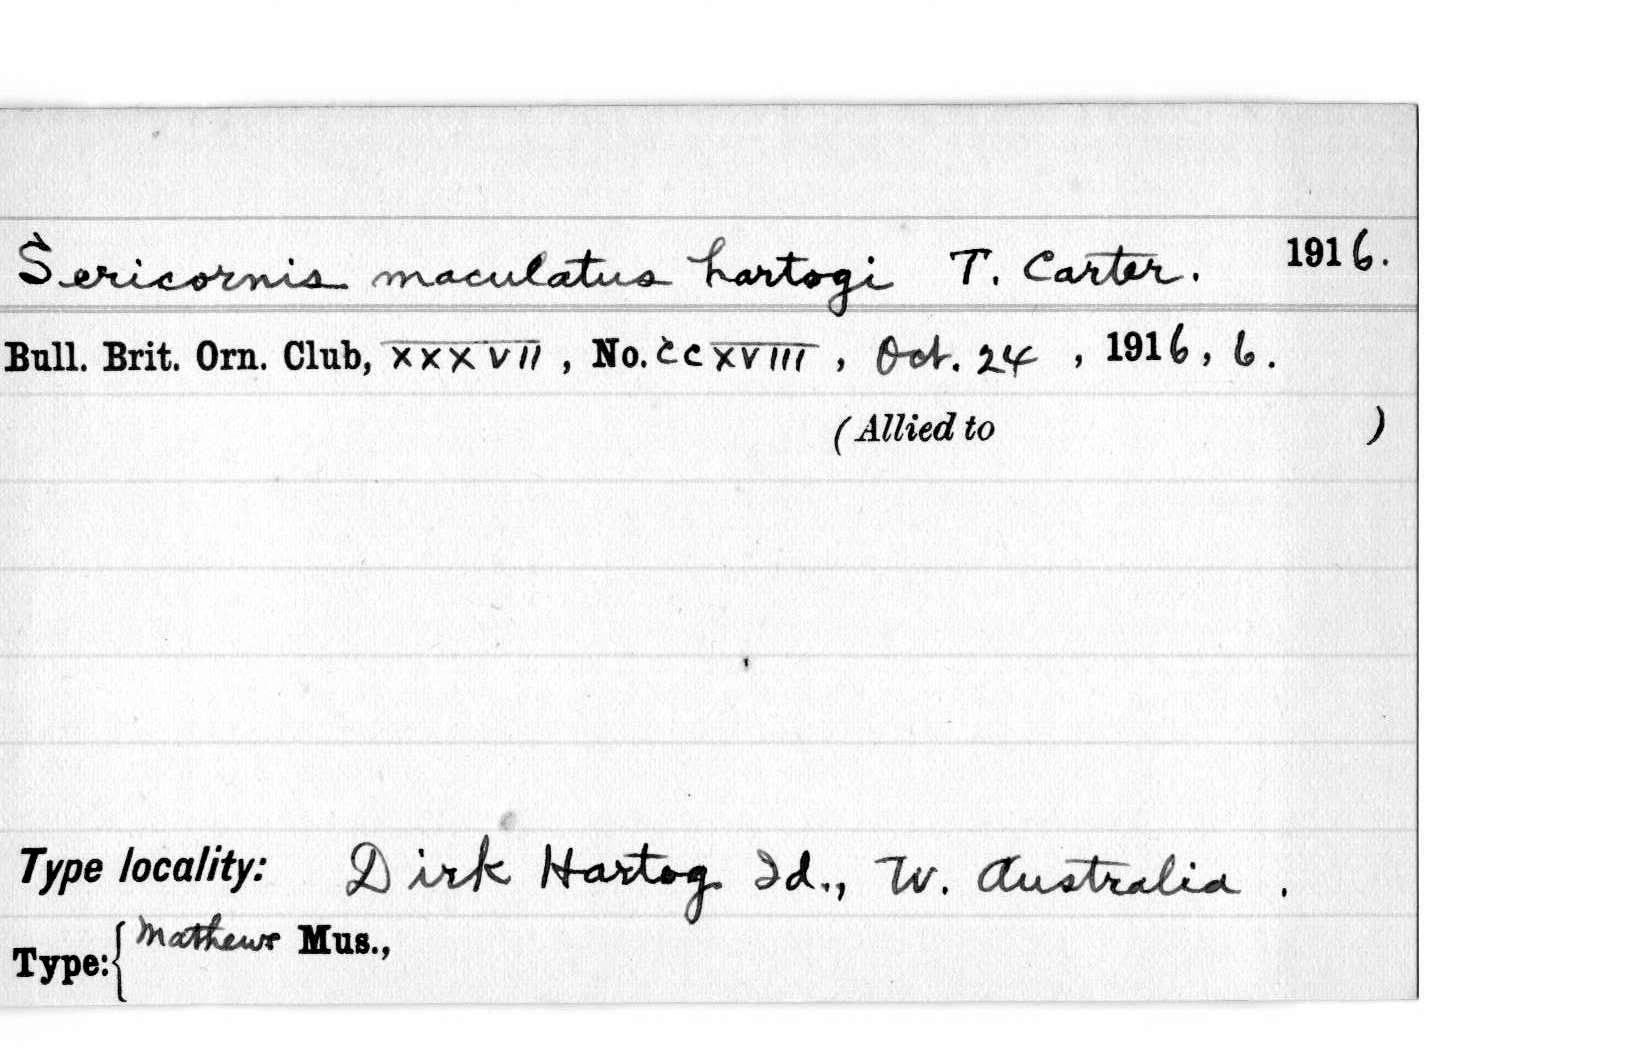 Sericornis maculatus hartogi T. Carter. 1916.
Bull. Brit. Orn. Club, XXXVII, No. CCXVIII, Oct. 24, 1916, 6.
(Allied to )
Type locality: Dirk Hartog Id., W. Australia.
Type: { Mathews Mus.,